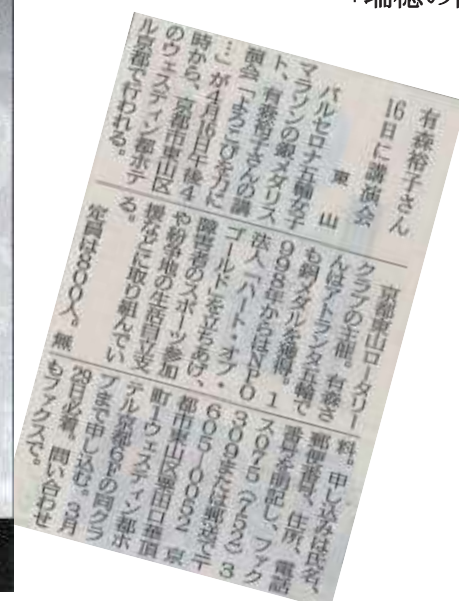 瑞穂の
有森裕子さん
16日に講演会
東山
バルセロナ五輪女子
マラソンの銀メダリス
ト、有森裕子さんの講
演会「よろこびを力に
…」が4月16日午後4
時から、京都市東山区
のウェスティン都ホテ
ル京都で行われる。
京都東山ロータリー
クラブの主催。有森さ
んはアトランタ五輪で
も銅メダルを獲得。1
998年からはNPO
法人「ハート・オブ・
ゴールド」を立ちあげ、
障害者のスポーツ参加
や紛争地の生活自立支
援などに取り組んでい
る。
定員は800人。無
料。申し込みは氏名、
郵便番号、住所、電話
番号を明記し、ファク
ス075(752)3
309または郵送で〒
605-0052 京
都市東山区粟田口華頂
町1ウェスティン都ホ
テル京都6Fの同クラ
ブまで申し込む。3月
29日必着。問い合わせ
もファクスで。